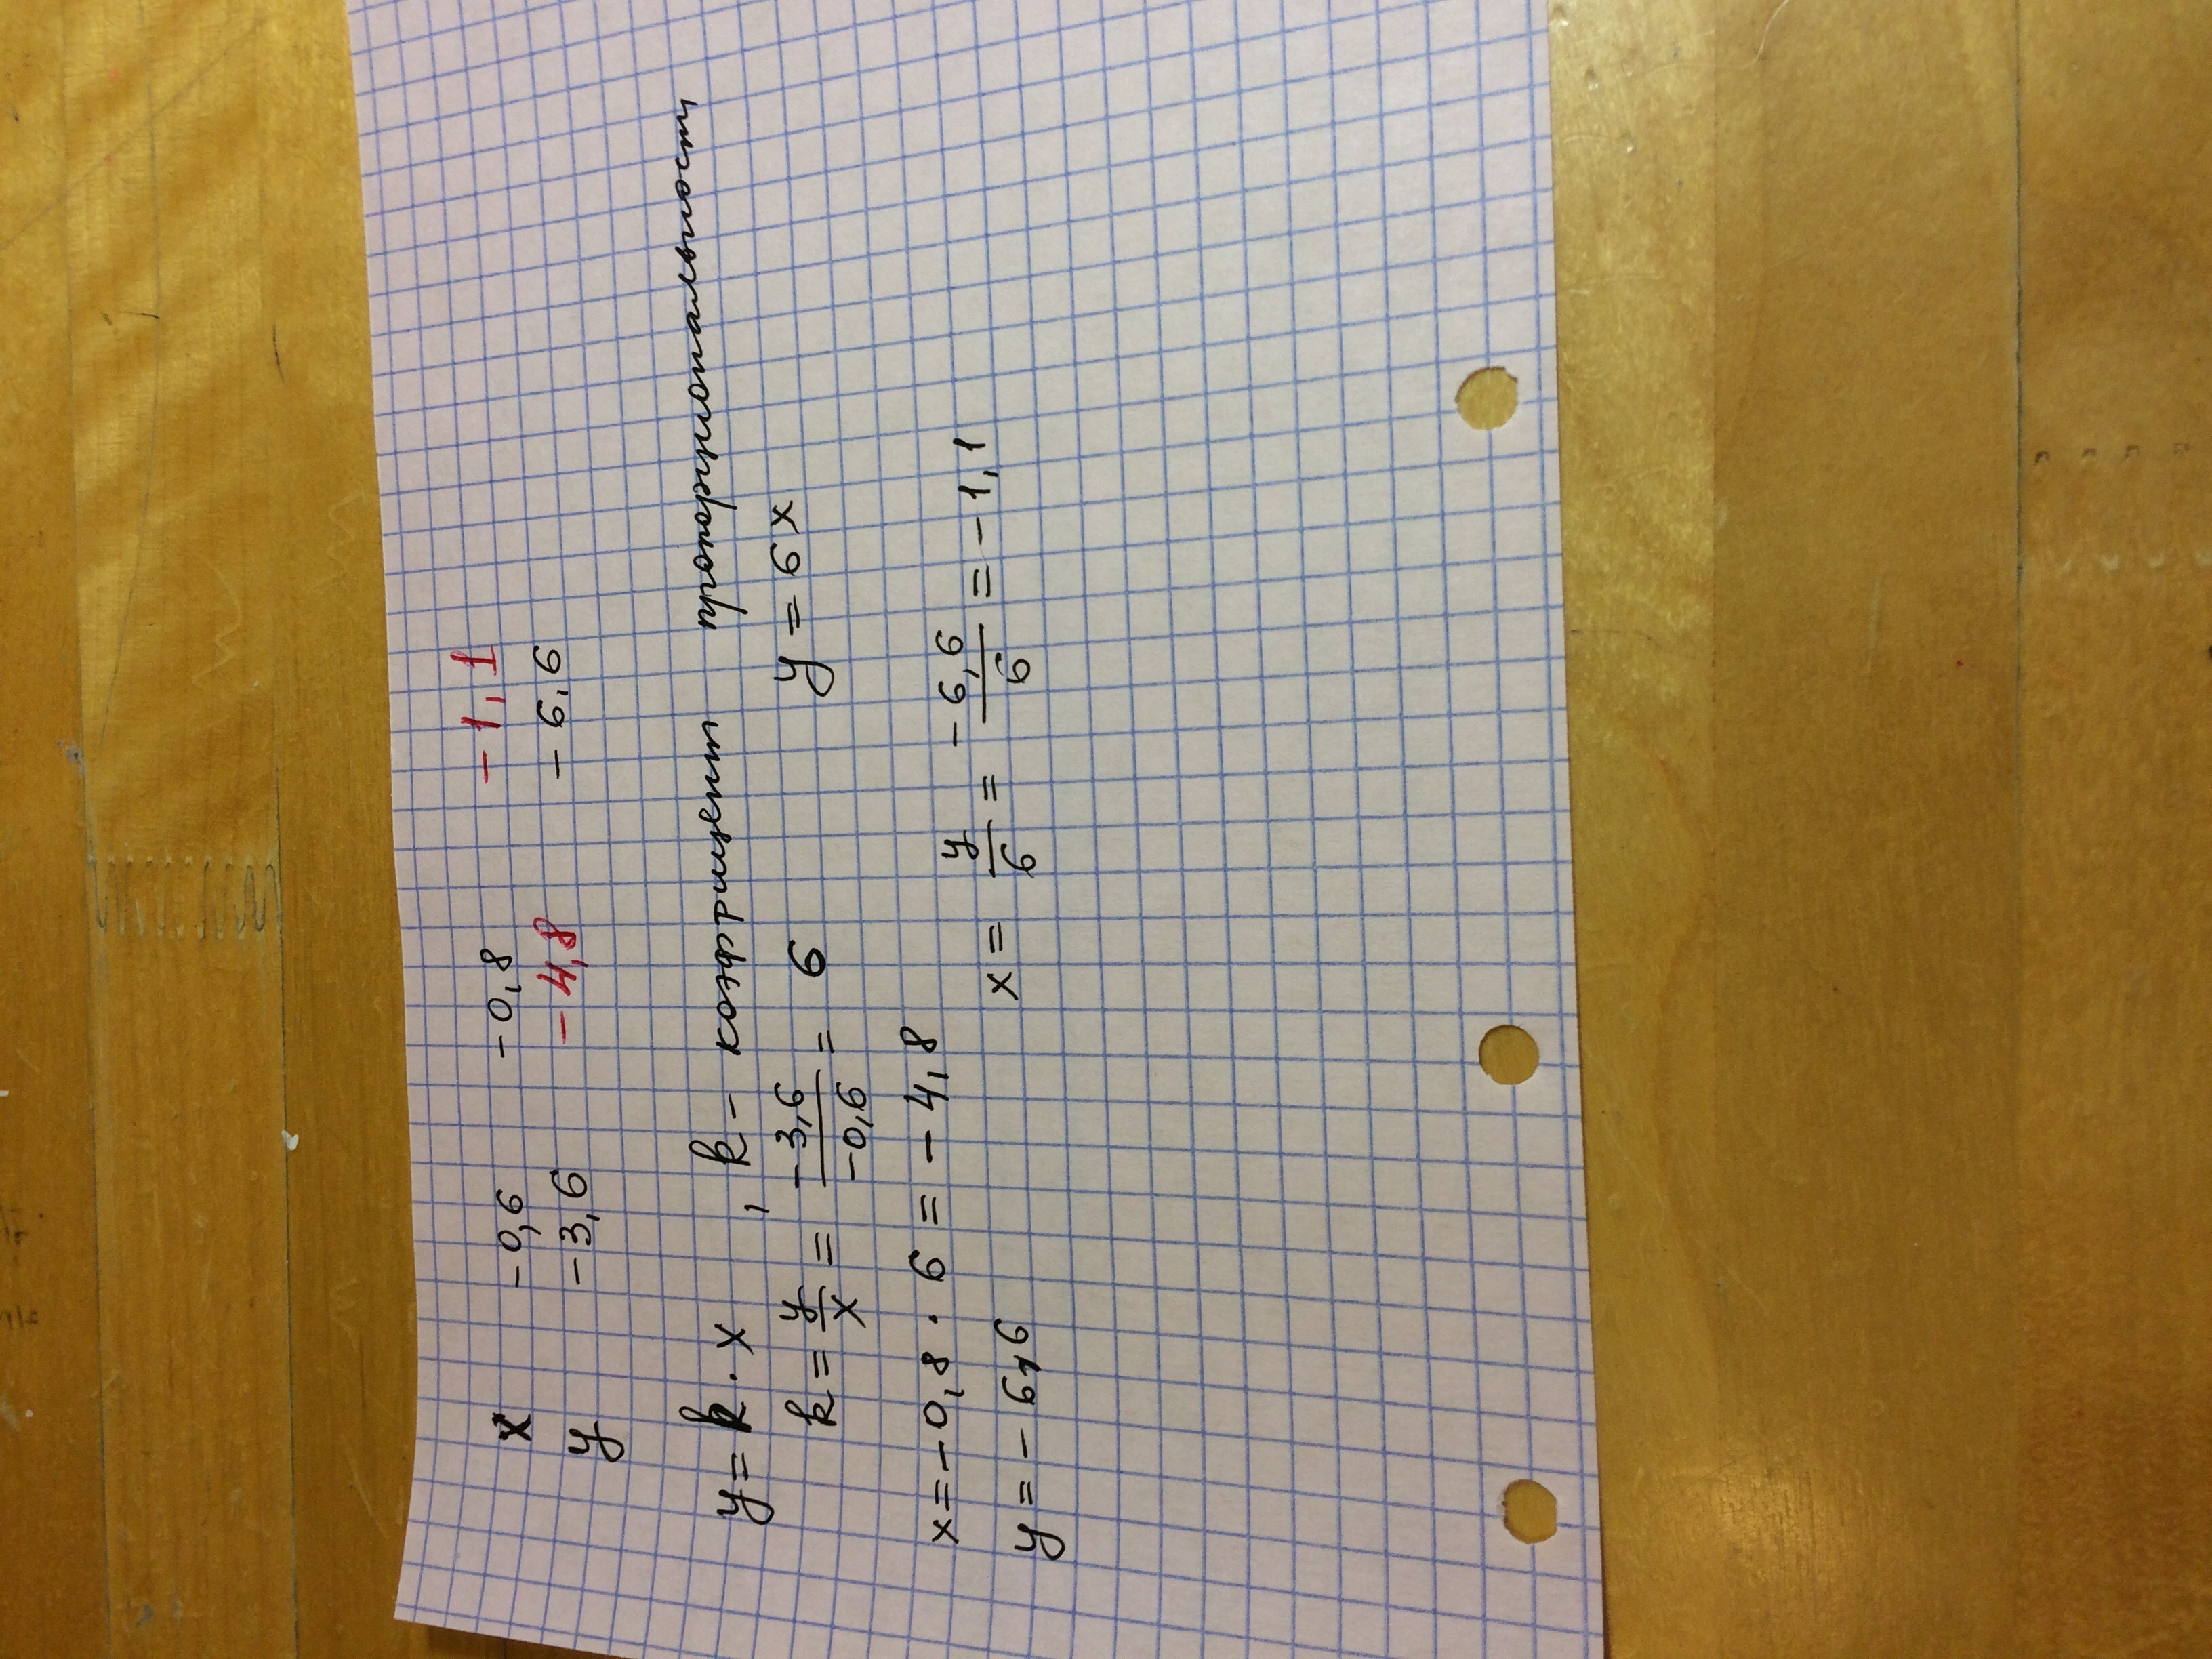 x -0,6 -0,8 -1,1
y -3,6 -4,8 -6,6
y = k · x , k - коэфрициент пропорциональност
k = y/x = -3,6/-0,6 = 6 y = 6x
x = -0,8 · 6 = -4,8
y = -6,6 x = y/6 = -6,6/6 = -1,1